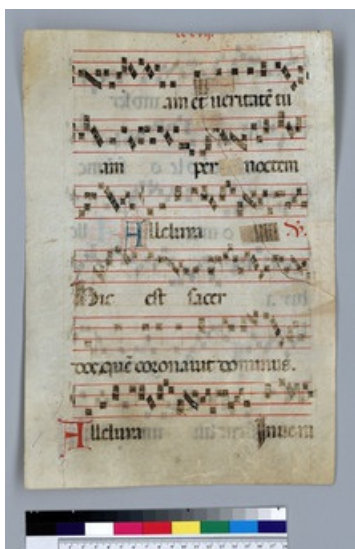 am et veritatē tu
am per noctem
Alleluia ℣.
Hic est sacer
dos, quē coronavit dominus.
Alleluia Inveni